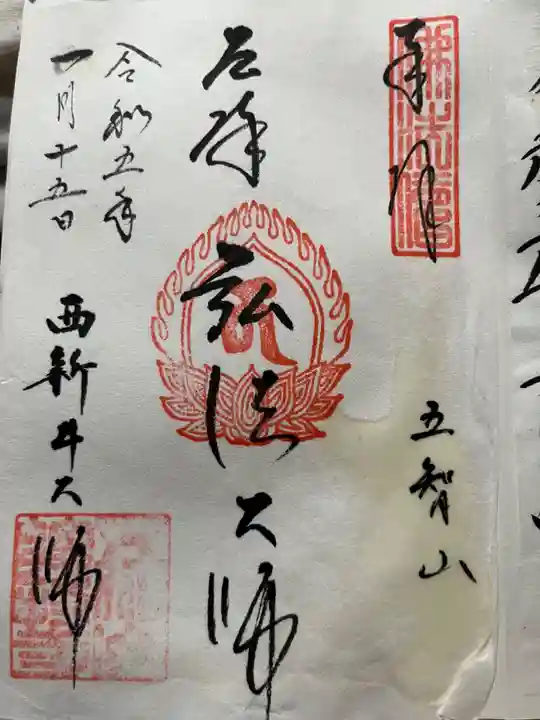 奉拝
五智山
厄除 弘法大師
令和五年
一月十五日
西新井大師